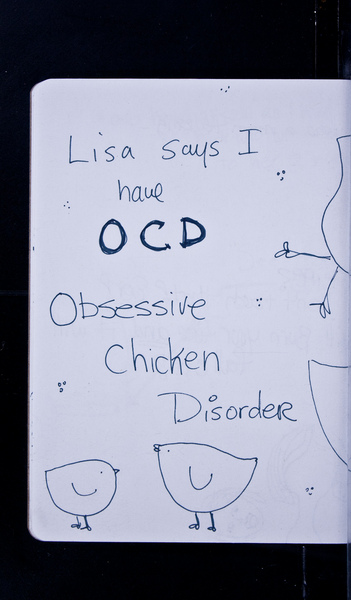 Lisa says I
have
OCD
Obsessive
Chicken
Disorder